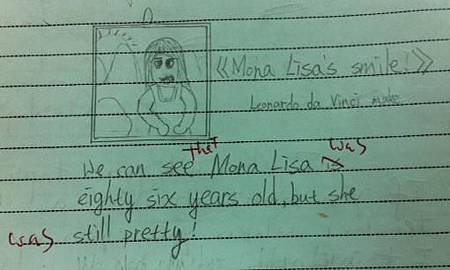 《Mona Lisa's smile!》
Leonardo da Vinci made
that was
We can see Mona Lisa is
eighty six years old, but she
was still pretty!